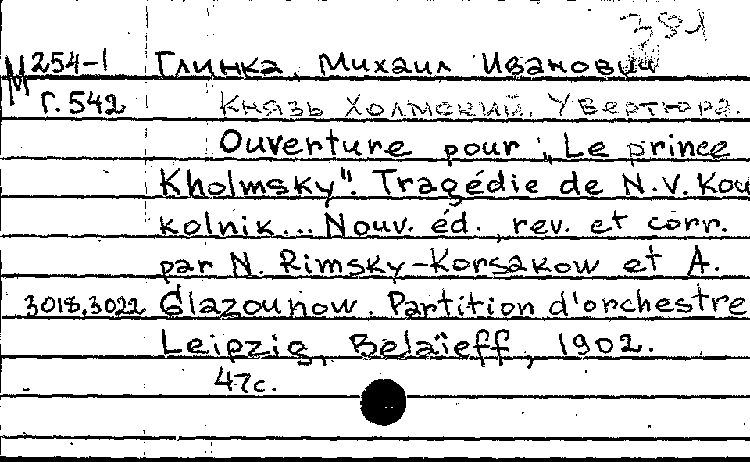 381
М 254-1 Глинка, Михаил Иванович
Г. 542 Князь Холмский. Увертюра.
Ouverture pour „Le prince
Kholmsky". Tragédie de N.V. Kou
kolnik... Nouv. éd., rev. et corr.
par N. Rimsky-Korsakow et A.
3018.3022 Glazounow. Partition d'orchestre
Leipzig, Belaïeff, 1902.
47с.